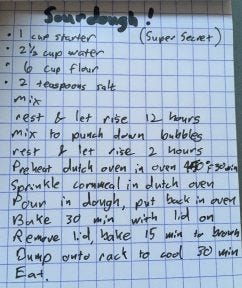 Sourdough!
• 1 cup starter (Super Secret)
• 2 ½ cup water
• 6 cup flour
• 2 teaspoons salt
mix
rest & let rise 12 hours
mix to punch down bubbles
rest & let rise 2 hours
Preheat dutch oven in oven 30 min
Sprinkle cornmeal in dutch oven
Pour in dough, put back in oven
Bake 30 min with lid on
Remove lid, bake 15 min to brown
Dump onto rack to cool 30 min
Eat.